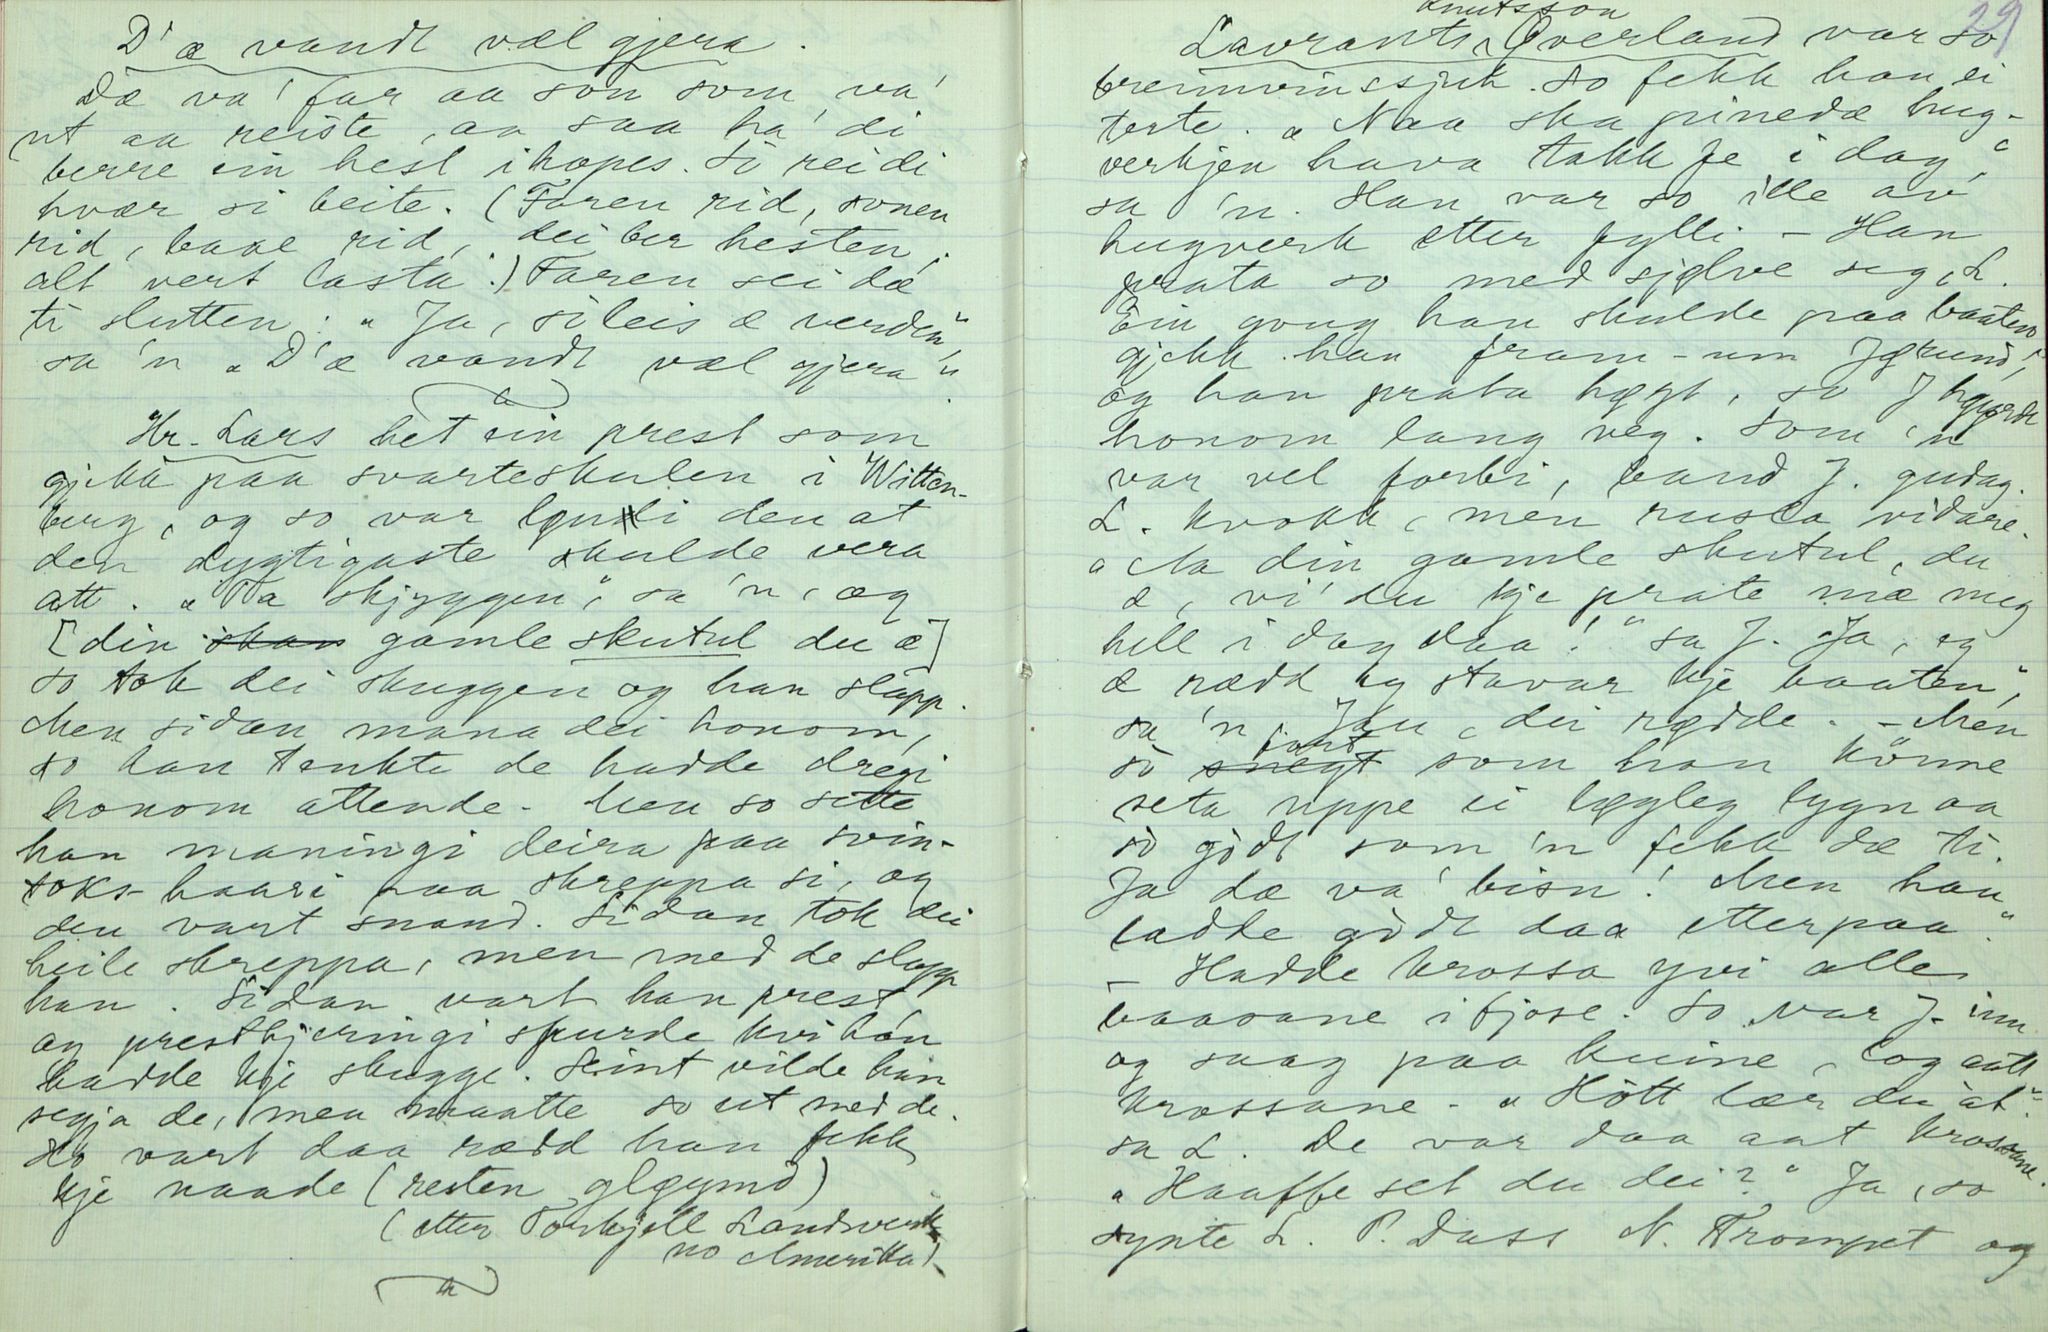 D'æ vandt væl gjera.
Dæ va' far aa son som va'
ut aa reiste, aa saa ha' di
berre ein hest ihopes. Si rei di
hvær si beite. (Faren rid, sonen
rid, baae rid, dei ber hesten,
alt vert lasta.) Faren sei dæ
ti slutten: "Ja, sileis æ verden",
sa 'n "D'æ vandt væl gjera".
Hr. Lars het ein prest som
gjekk paa svarteskulen i Witten-
berg, og so var løuni den at
den dygtigaste skulde vera
att. "Ta skjyggen", sa 'n, og
[din gamle skutul du æ]
so tok dei skuggen og han slapp.
Men sidan mana dei honom,
so han tenkte de hadde dregi
honom attende. Men so sette
han maningi deira paa svin-
toks-haari paa skreppa si, og
den vart snaud. Sidan tok dei
heile skreppa, men med de slapp
han. Sidan vart han prest
og prestkjeringi spurde kvi han
hadde kje skugge. Seint vilde han
segja de, men maatte so ut med de.
Ho vart daa rædd han fekk
kje naade (resten gløymd)
(etter Torkjell Landsverk
no Amerika)
29
Knutsson
Lavrants Øverland var so
brennvinssjuk. So fekk han ei
terte. "Naa ska pinedæ hug-
verkjen hava takk fe i dag",
sa 'n. Han var so ille av
hugverk etter fylli. - Han
prata so med sjølve seg, L.
Ein gong han skulde paa baaten,
gjekk han fram-um Jørund,
og han prata høgt, so J høyrde
honom lang veg. Som 'n
var vel forbi, baud J. gudag.
L. kvokk, men rusla vidare.
"Aa din gamle skutul, du
æ, vi' du kje prate mæ meg
hell i dag daa!" sa J. Ja, eg
æ rædd eg stavar kje baaten",
sa 'n. Jau, dei rødde. - Men
so fort som han könne
seta uppe ei løgleg lygn aa
so godt som 'n fekk dæ ti.
Ja dæ va' bisn! Men han
ladde godt daa etterpaa."
- Hadde krossa yvi alle
baasane i fjose. So var J. inn
og saag paa kuine, log aatt
krossane. - "Hött lær du åt"?
sa L. De var daa aat krossane.
"Haaffe set du dei?" Ja, so
synte L. P. Dass N. Trompet og